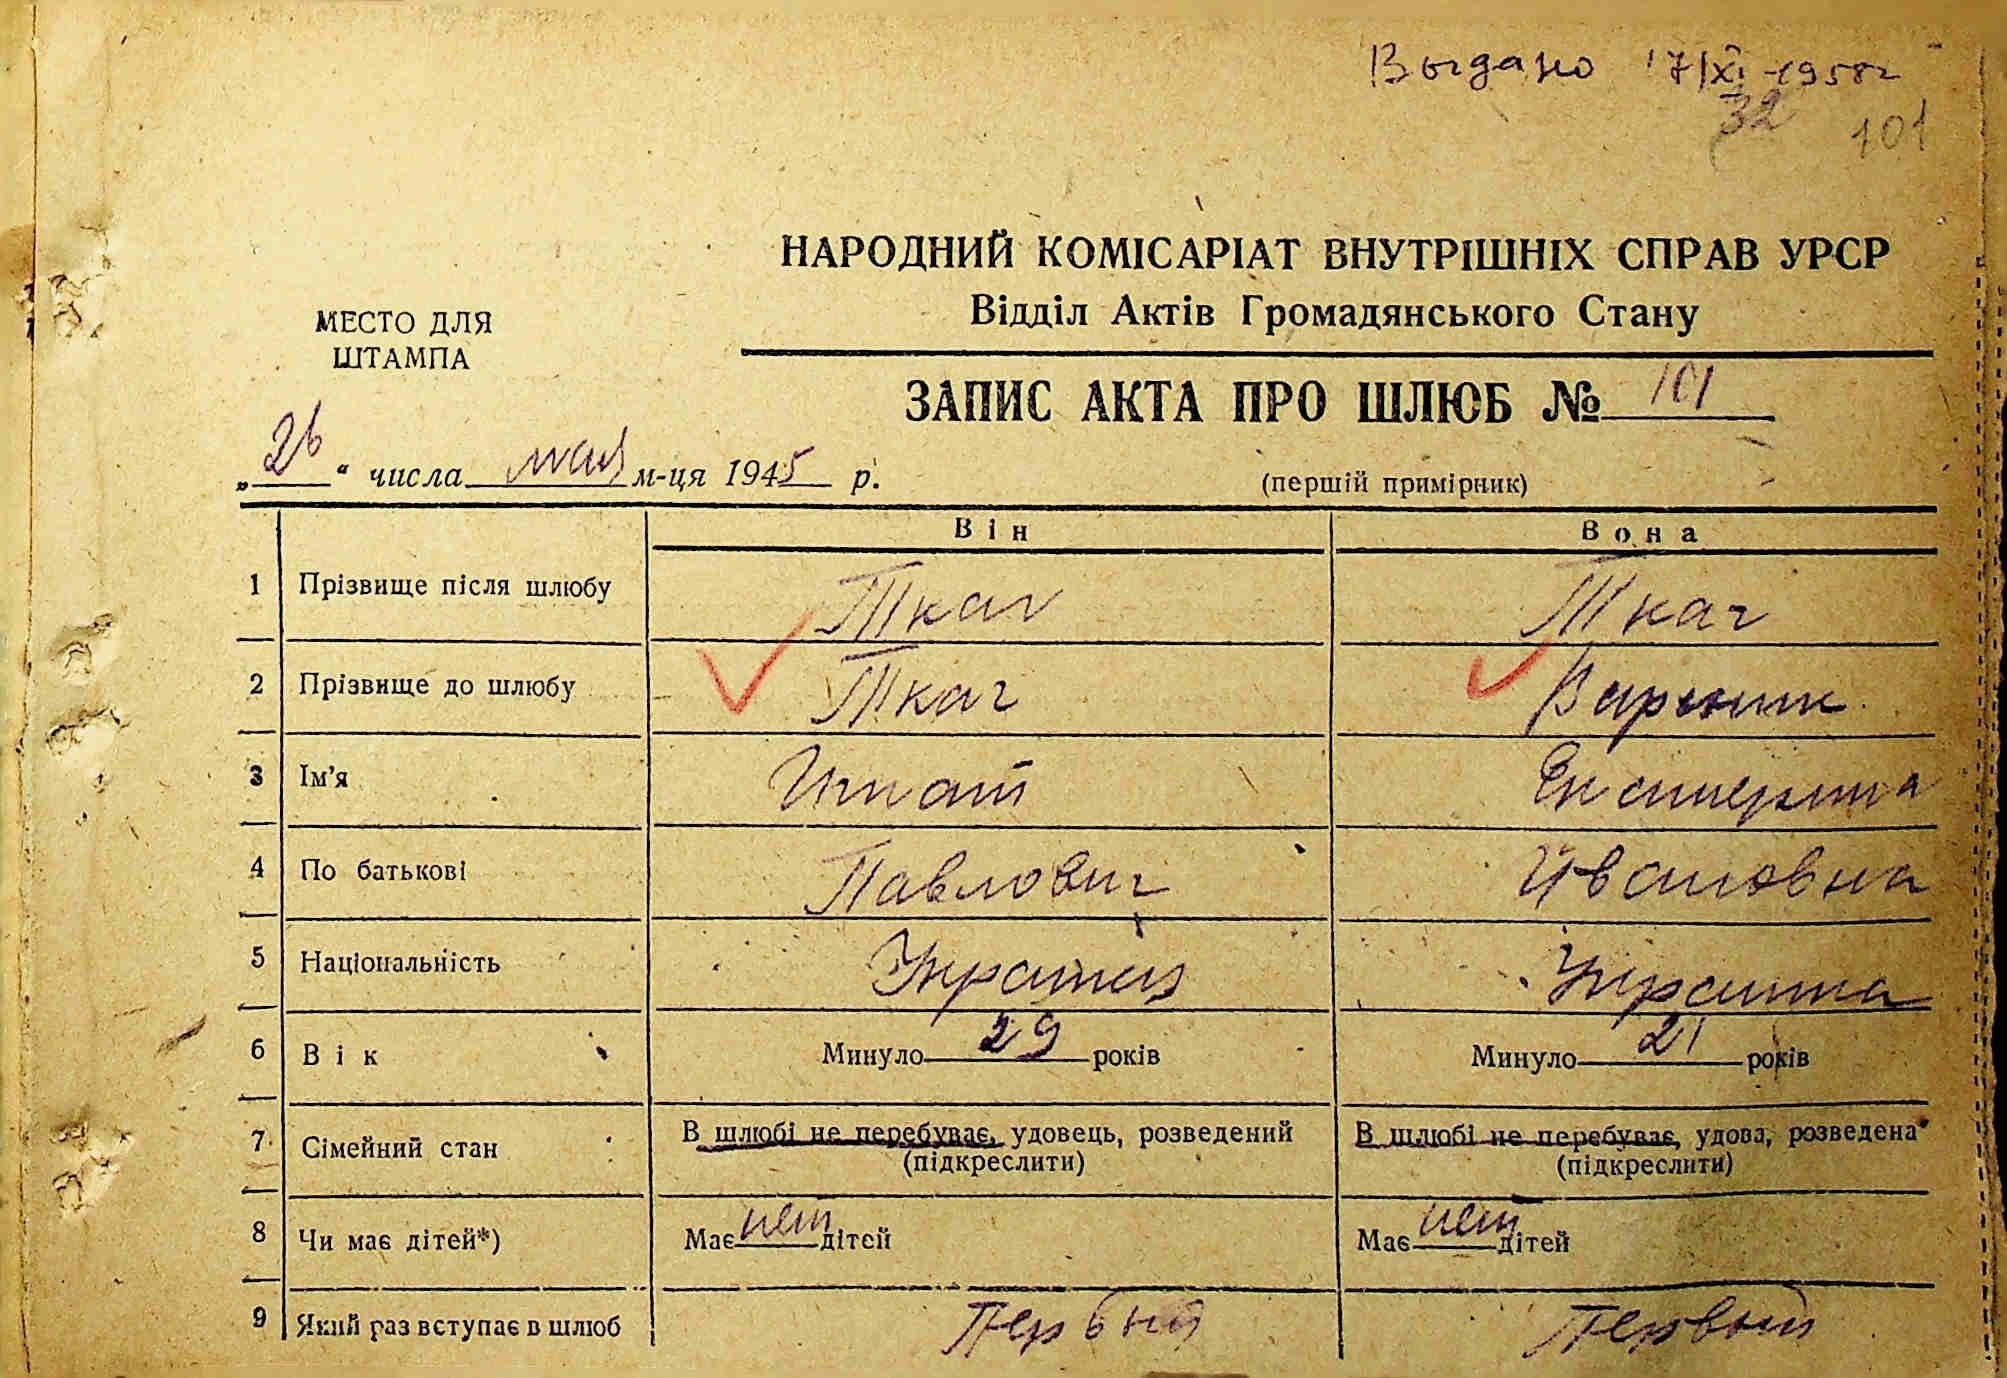 Выдано 17/XI-1958г
32
101
НАРОДНИЙ КОМІСАРІАТ ВНУТРІШНІХ СПРАВ УРСР
Відділ Актів Громадянського Стану
МЕСТО ДЛЯ
ШТАМПА
ЗАПИС АКТА ПРО ШЛЮБ № 101
„26“ числа мая м-ця 1945 р.
(першій примірник)
Він Вона
1 Прізвище після шлюбу Ткач Ткач
2 Прізвище до шлюбу Ткач
3 Ім'я Игнат Екатерина
4 По батькові Павлович Ивановна
5 Національність Украинец Украинка
6 Вік Минуло 29 років Минуло 21 років
7 Сімейний стан В шлюбі не перебуває, удовець, розведений В шлюбі не перебуває, удова, розведена
(підкреслити) (підкреслити)
8 Чи має дітей*) Має нет дітей Має нет дітей
9 Який раз вступає в шлюб Первый Первый